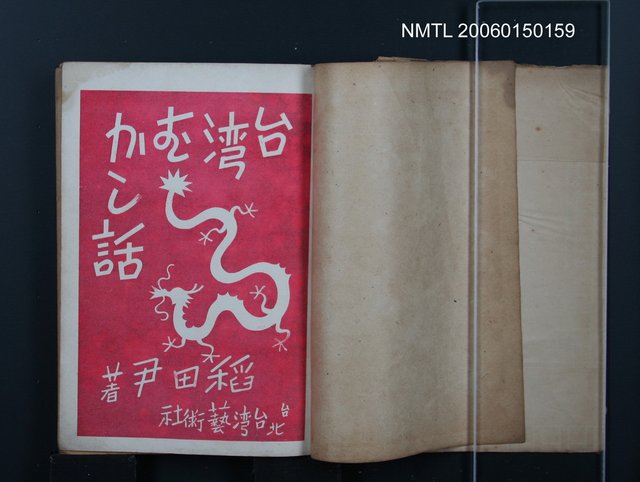 NMTL 20060150159
台湾むか
し話
稻田尹著
台北
台湾藝術社